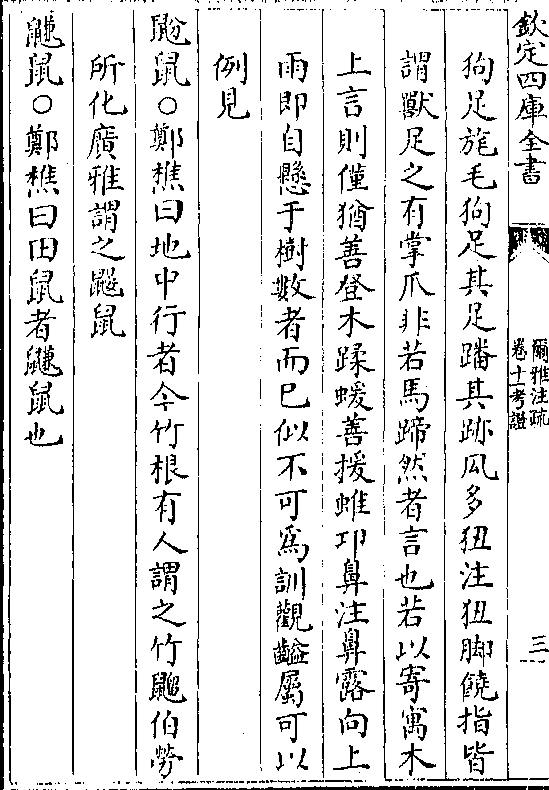 欽定四庫全書
爾雅注疏
卷十考證
三
狗足旄毛狗足其足蹯其跡厹多狃注狃脚饒指皆
謂獸足之有掌爪非若馬蹄然者言也若以寄寓木
上言則僅猶善登木蹂蝯善援蜼卬鼻注鼻露向上
雨即自懸于樹數者而已似不可為訓觀齸屬可以
例見
鼢鼠○鄭樵曰地中行者今竹根有人謂之竹䶉伯勞
所化廣雅謂之鼴鼠
鼸鼠○鄭樵曰田鼠者鼸鼠也